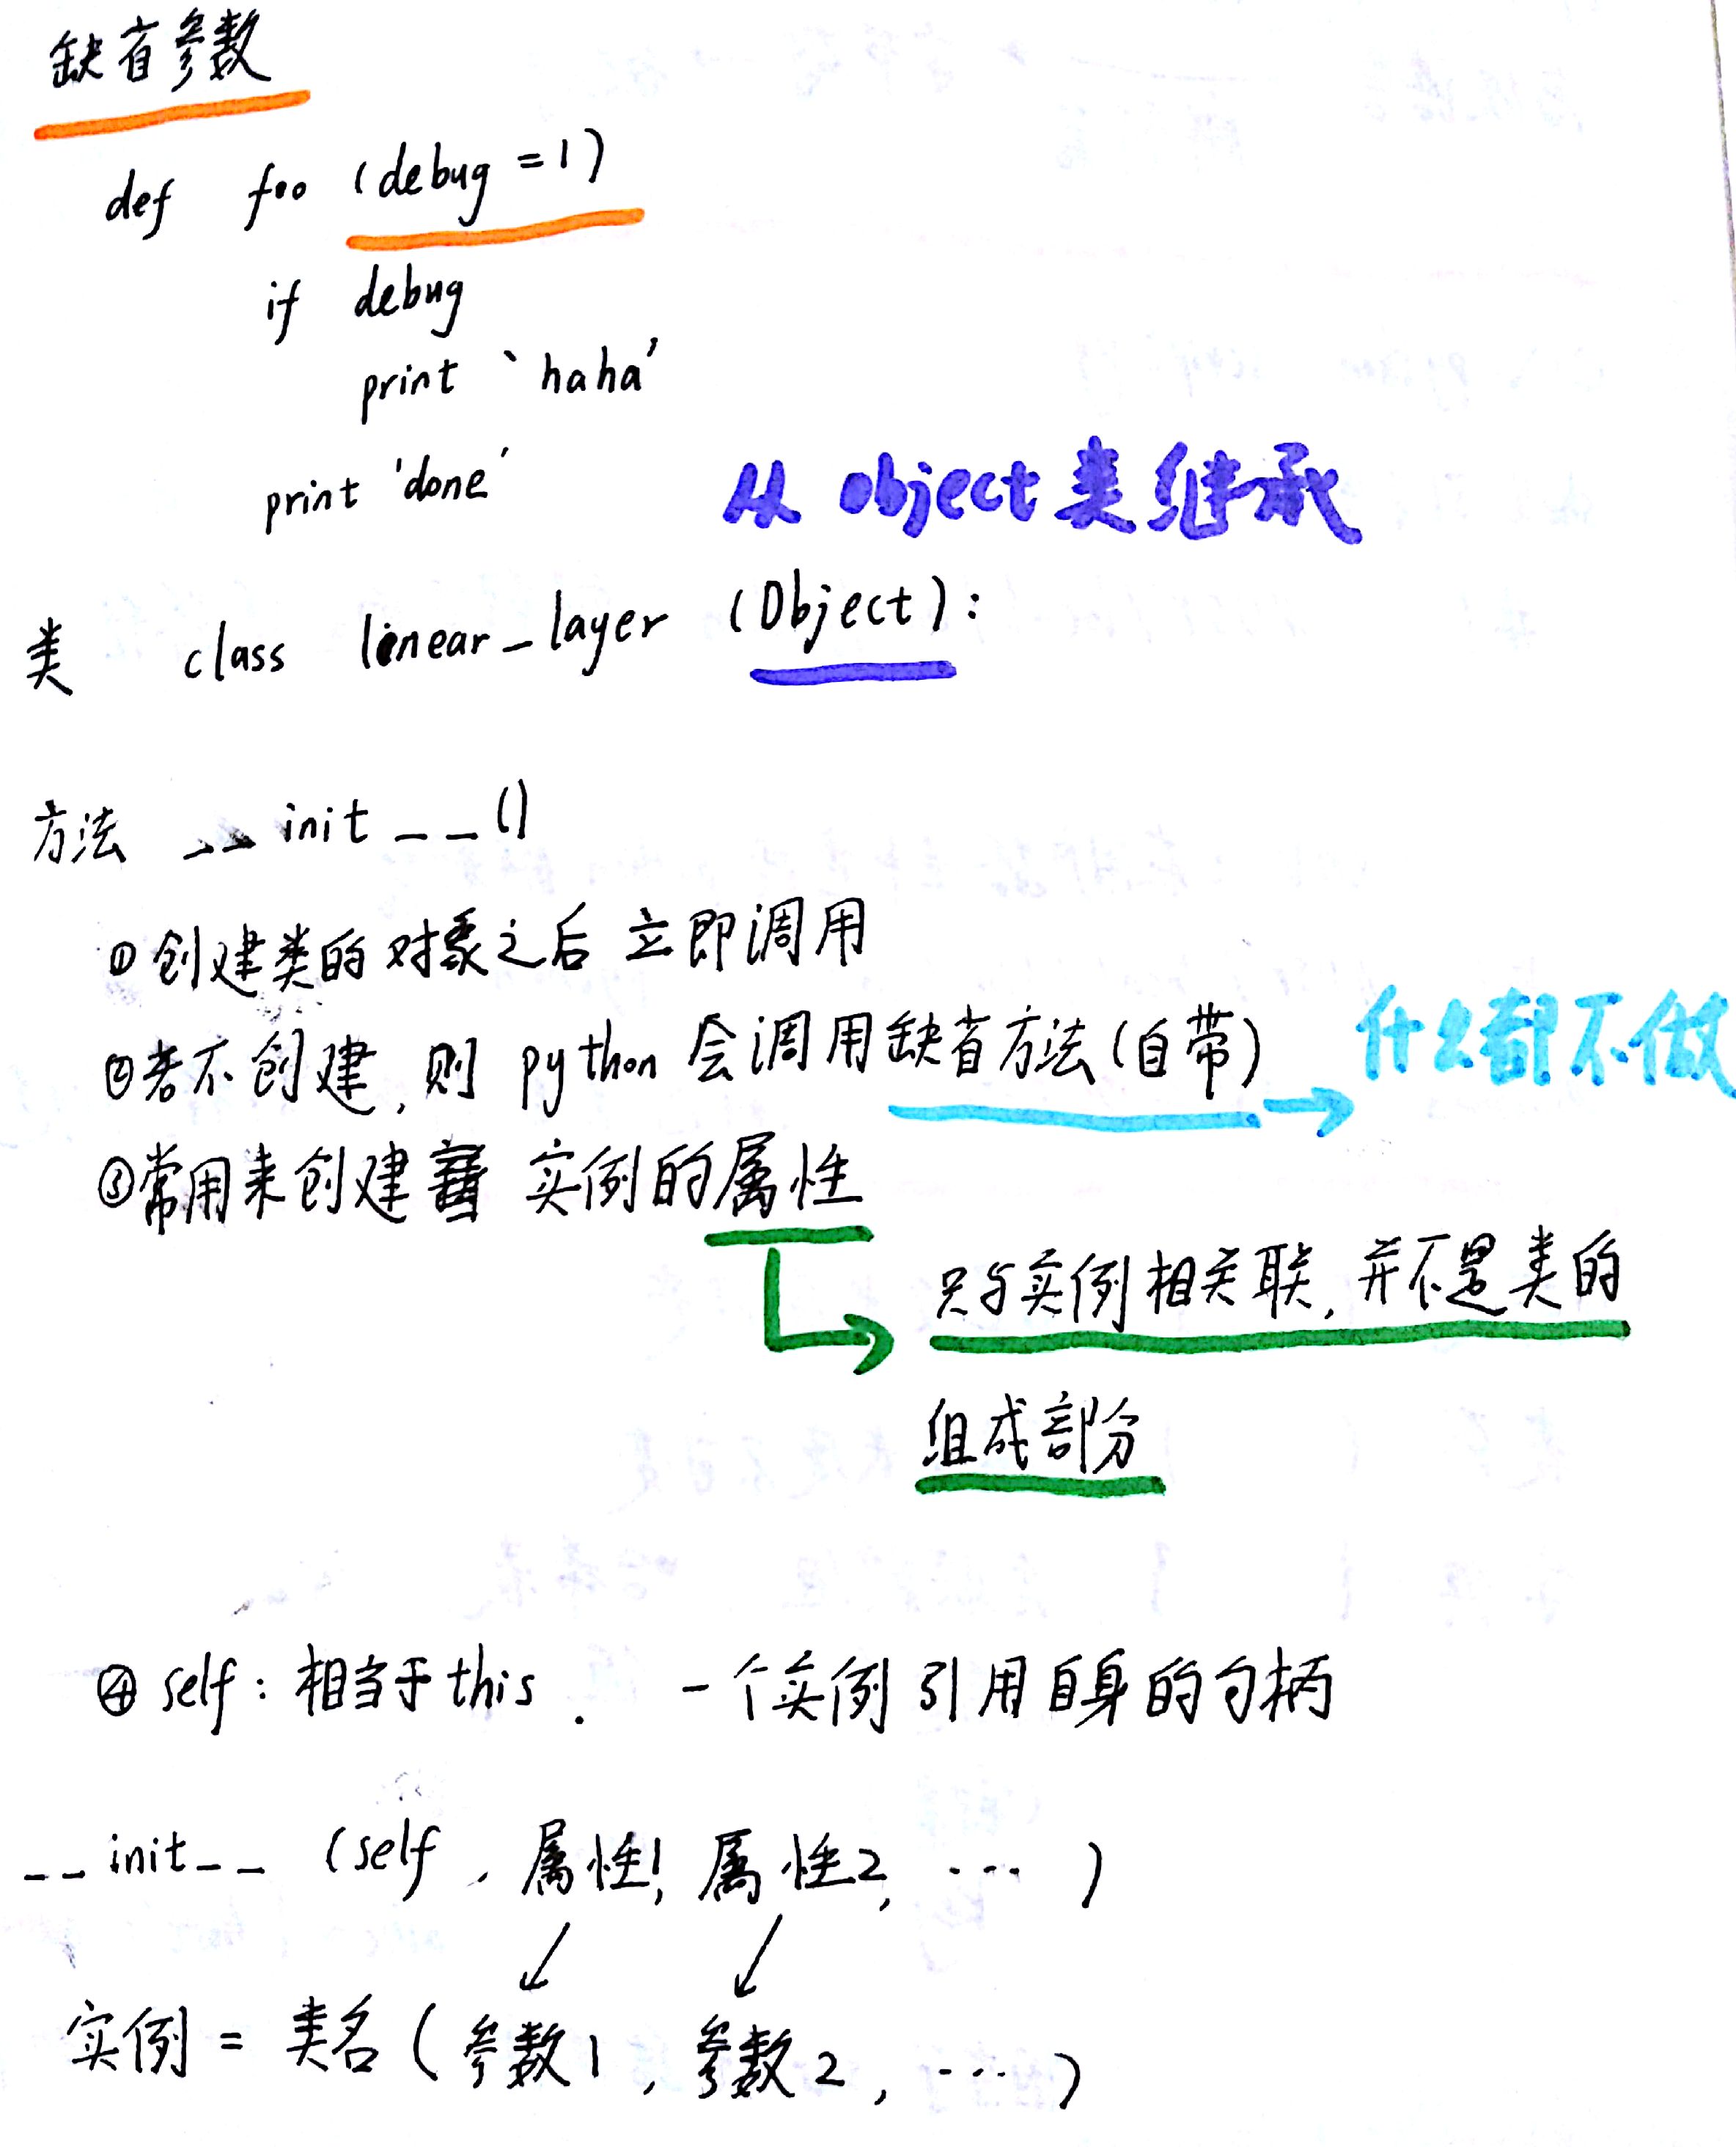 缺省参数
def foo (debug =1)
if debug
print `haha'
print 'done'
从 object 类继承
类 class linear_layer (Object):
方法 __init__()
①创建类的对象之后 立即调用
②若不创建,则 python 会调用缺省方法(自带) → 什么都不做
③常用来创建 实例的属性
只与实例相关联,并不是类的
组成部分
④ self: 相当于this. 一个实例引用自身的句柄
__init__ (self, 属性1, 属性2, ...)
实例 = 类名 (参数1, 参数2, ...)